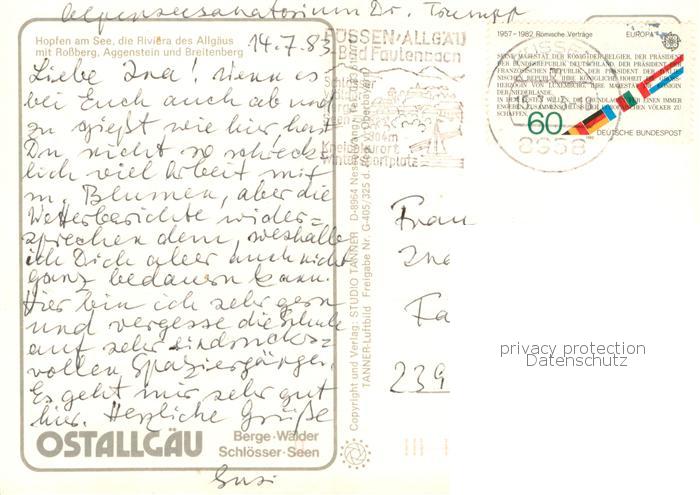 Alpenseesanatorium Dr. Trumpp
Hopfen am See, die Riviera des Allgäus
mit Roßberg, Aggenstein und Breitenberg
14.7.83
Liebe Ina! Wenn es
bei Euch auch ab und
zu gießt wie hier, hast
Du nicht so schreck-
lich viel Arbeit mit
m. Blumen, aber die
Wetterberichte wider=
sprechen dem, weshalb
ich Dich aber auch nicht
ganz bedauern kann.
Hier bin ich sehr gern
und vergesse die Schule
auf sehr eindrucks=
vollen Spaziergängen.
Es geht mir sehr gut
hier. Herzliche Grüße
Susi
OSTALLGÄU
Berge·Wälder
Schlösser·Seen
Copyright und Verlag: STUDIO TANNER D-8964 Nesselwang
TANNER-Luftbild Freigabe Nr. G-405/325 d. Reg. v. Oberbayern
FÜSSEN/ALLGÄU
Bad Faulenbach
Kneippkurort
Wintersportplatz
FÜSSEN
8958
1957-1982 Römische Verträge EUROPA
SEINE MAJESTÄT DER KÖNIG DER BELGIER, DER PRÄSIDENT
DER BUNDESREPUBLIK DEUTSCHLAND, DER PRÄSIDENT DER
FRANZÖSISCHEN REPUBLIK, DER PRÄSIDENT DER
HERZOGIN VON LUXEMBURG, IHRE MAJESTÄT DIE KÖNIGIN
DER NIEDERLANDE,
SCHAFFEN
60
DEUTSCHE BUNDESPOST
Frau
Ina
Fa
239
privacy protection
Datenschutz